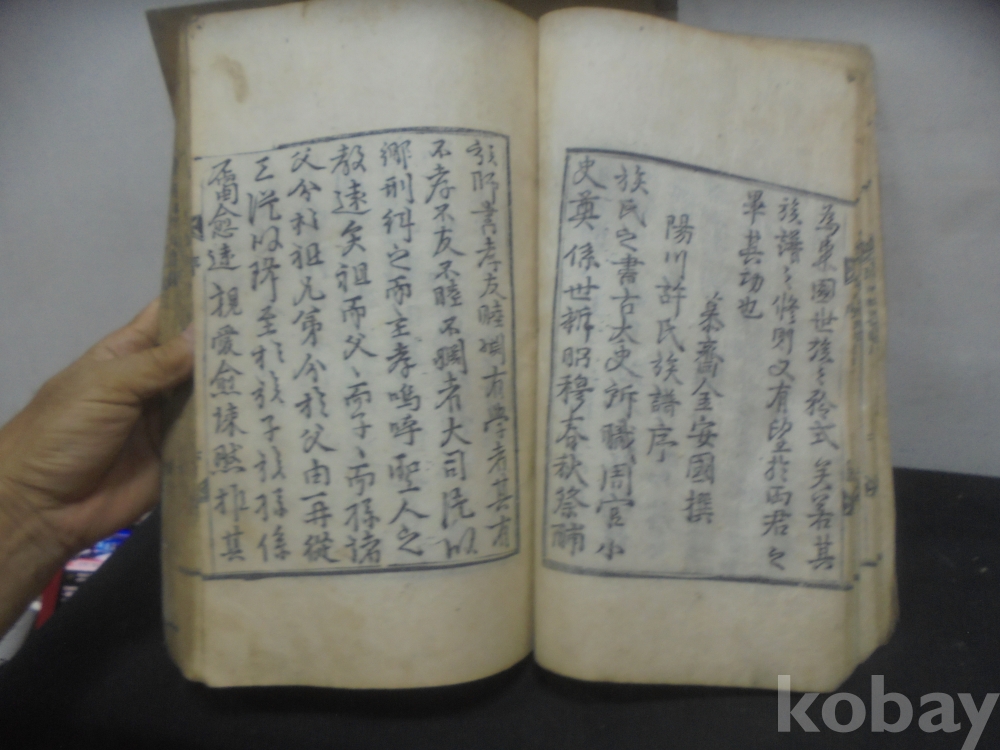 為東國世族之矜式矣若其
族譜之修則又有望於兩君之
畢其功也
慕齋金安國撰
陽川許氏族譜序
族氏之書古太史所職周官小
史奠係世辨昭穆春秋祭酺
族師書孝友睦婣有學者其有
不孝不友不睦不婣者大司徒以
鄉刑糾之而主孝嗚呼聖人之
教遠矣祖而父父而子子而孫諸
父分於祖兄弟分於父由一再從
三從以降至於族子族孫係
屬愈遠親愛愈疎然推其
kobay